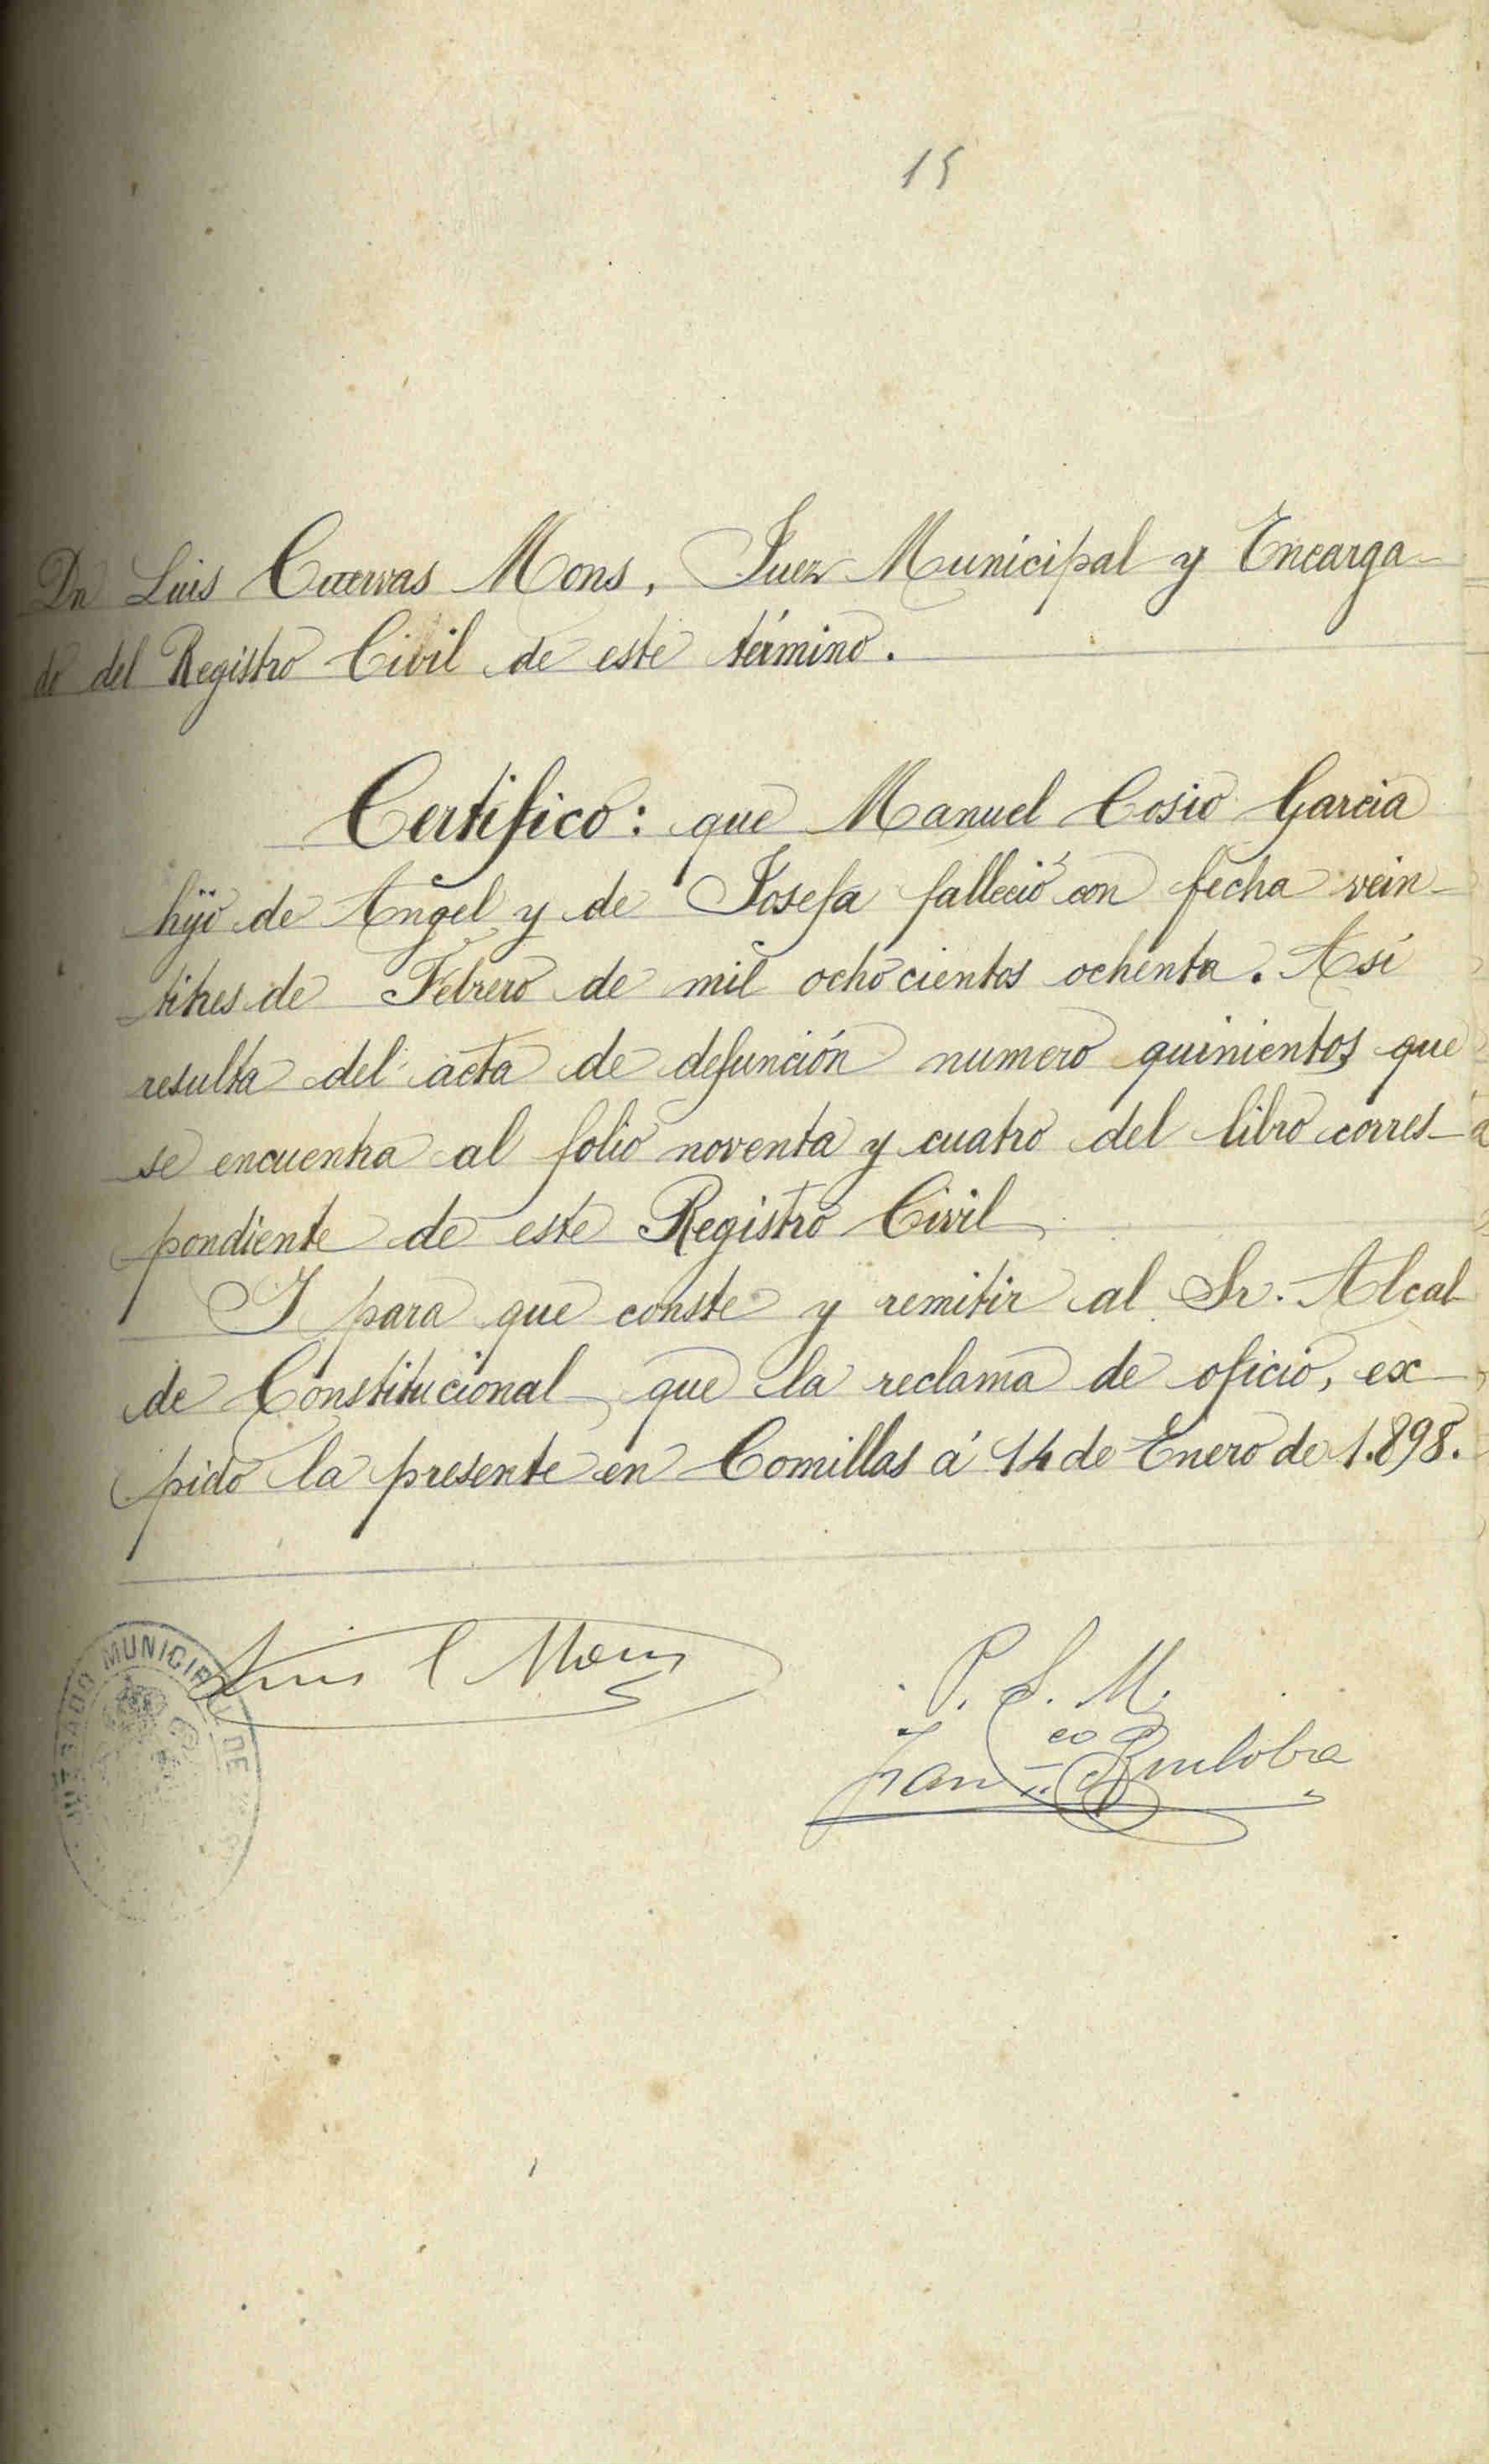 15
Dn Luis Cuervas Mons, Juez Municipal y Encarga-
do del Registro Civil de este término.
Certifico: que Manuel Cosio Garcia
hijo de Angel y de Josefa falleció con fecha vein-
titres de Febrero de mil ochocientos ochenta. Así
resulta del acta de defunción numero quinientos que
se encuentra al folio noventa y cuatro del libro corres-
pondiente de este Registro Civil
Y para que conste y remitir al Sr. Alcal
de Constitucional que la reclama de oficio, ex-
pido la presente en Comillas á 14 de Enero de 1.898.
JUZGADO MUNICIPAL DE
Luis C Mons
P. S. M.
Fran co